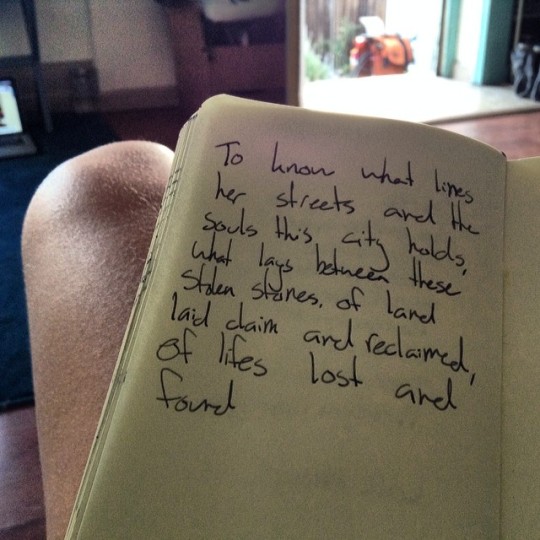 To know what lines
her streets and the
souls this city holds,
what lays between these
stolen stories, of land
laid claim and reclaimed,
of lifes lost and
found